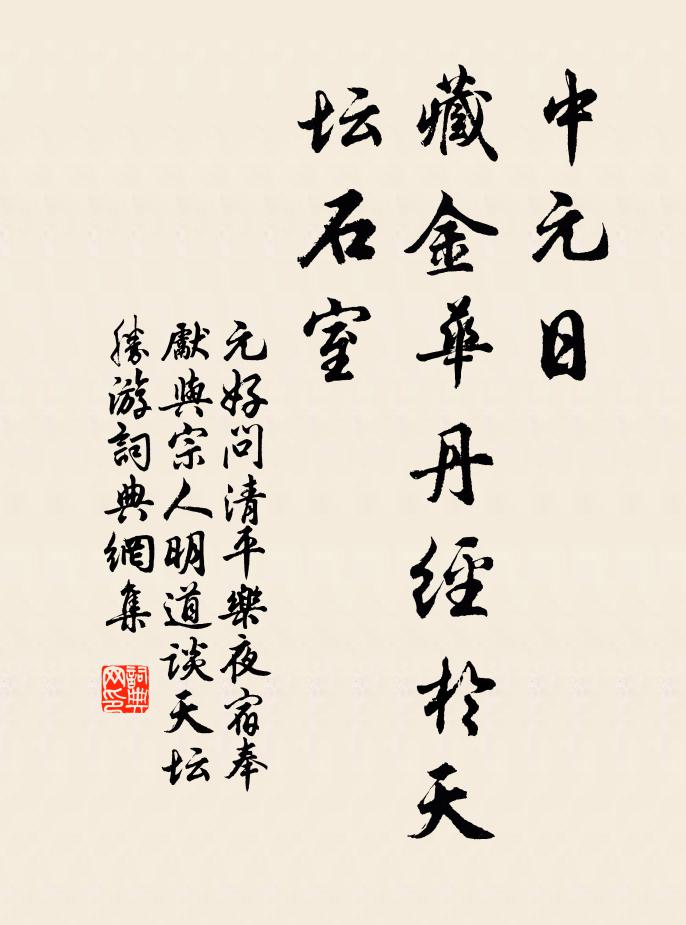 中元日
藏金華丹經於天
坛石室
元好问清平樂夜宿奉
獻與宗人明道谈天坛
勝游詞典網集
詞典网印